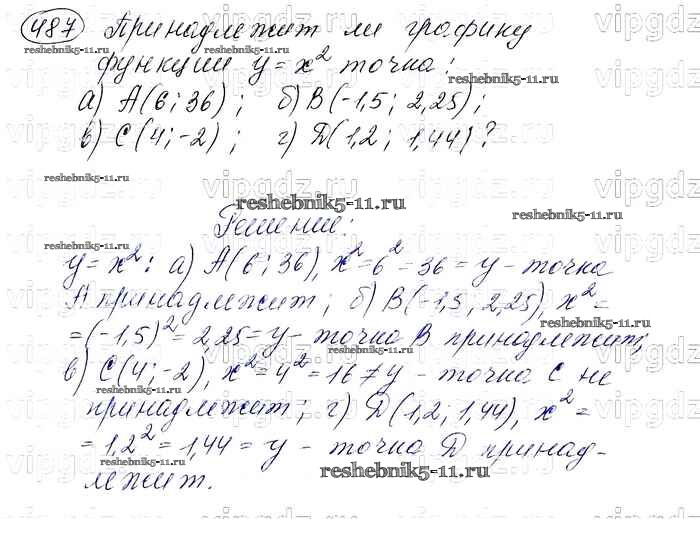 487 Принадлежит ли графику
функции y = x² точка:
а) А(6; 36); б) В(-1,5; 2,25);
в) С(4; -2); г) D(1,2; 1,44)?
Решение:
y = x²: а) А(6; 36), x² = 6² = 36 = y - точка
А принадлежит; б) В(-1,5, 2,25), x² =
= (-1,5)² = 2,25 = y - точка В принадлежит;
в) С(4; -2), x² = 4² = 16 ≠ y - точка С не
принадлежит; г) D(1,2; 1,44), x² =
= 1,2² = 1,44 = y - точка D принад-
лежит.
reshebnik5-11.ru
vipgdz